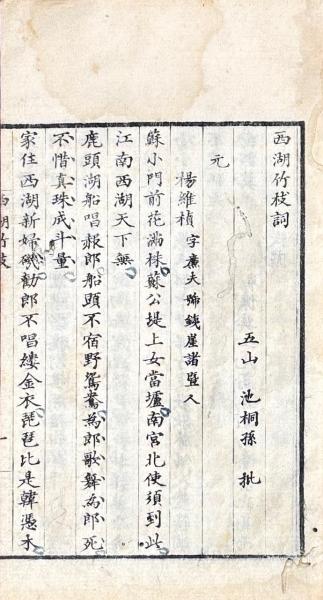 西湖竹枝詞
五山 池桐孫 批
元
楊維楨 字廉夫號鐵崖諸曁人
蘇小門前花滿株蘇公堤上女當壚南宮北使須到此
江南西湖天下無
鹿頭湖船唱赧郎船頭不宿野鴛鴦為郎歌舞為郎死
不惜真珠成斗量
家住西湖新婦磯勸郎不唱縷金衣琵琶比是韓憑木
西湖竹枝
一